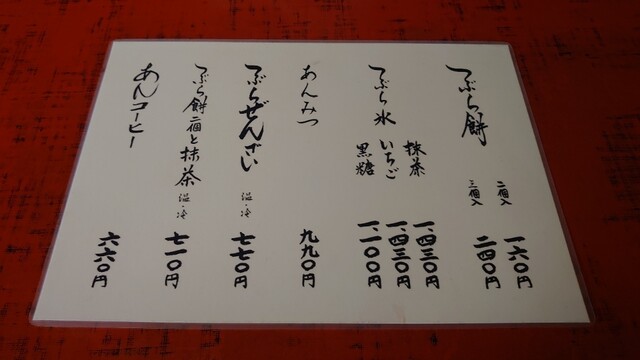 つぶら餅
二個入 一六〇円
三個入 二四〇円
つぶら氷
抹茶 一、四三〇円
いちご 一、四三〇円
黒糖 一、一〇〇円
あんみつ 九九〇円
つぶらぜんざい 温・冷 七七〇円
つぶら餅二個と抹茶 温・冷 七一〇円
あんコーヒー 六六〇円